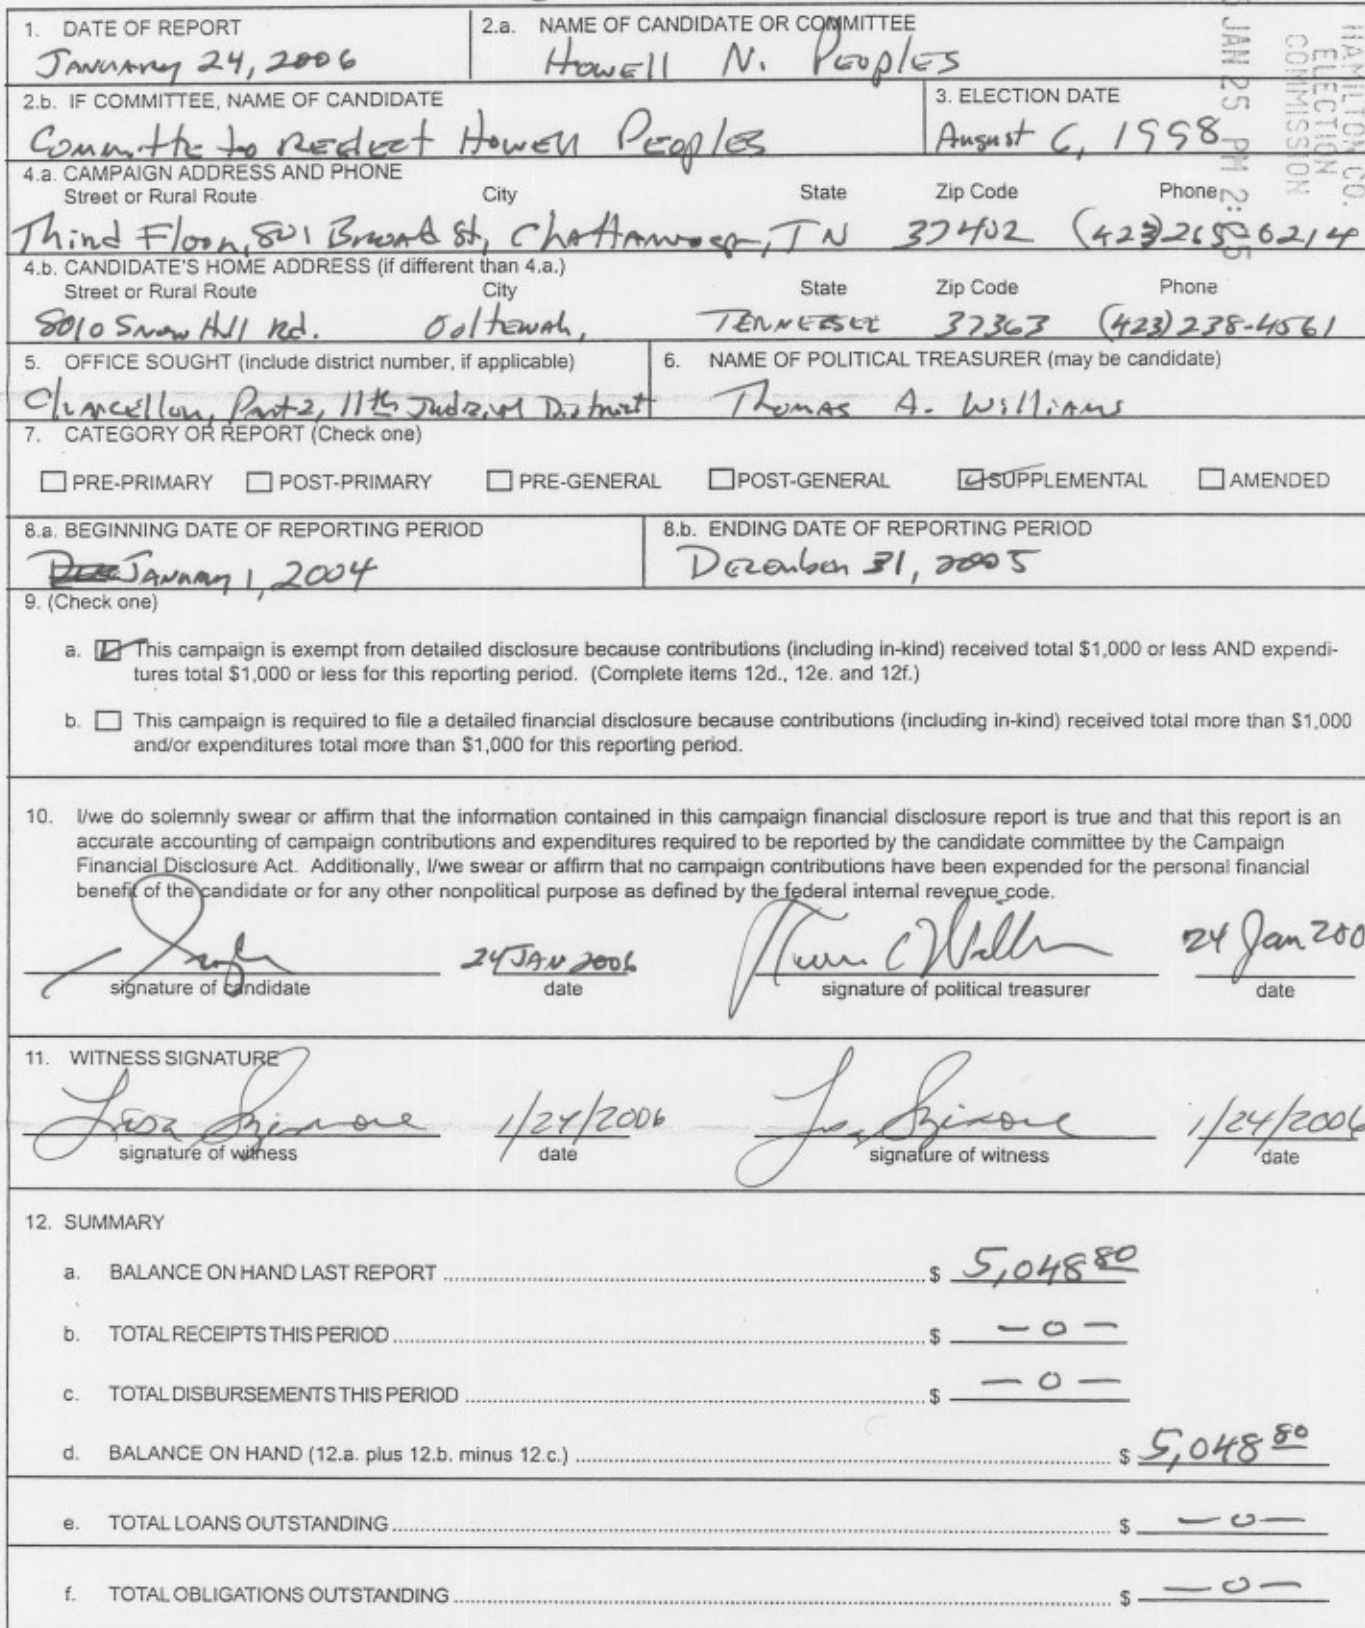 1. DATE OF REPORT
January 24, 2006
2.a. NAME OF CANDIDATE OR COMMITTEE
Howell N. Peoples
2.b. IF COMMITTEE, NAME OF CANDIDATE
Committe to Reelect Howell Peoples
3. ELECTION DATE
August 6, 1998
HAMILTON CO.
ELECTION
COMMISSION
JAN 25 PM 2:
4.a. CAMPAIGN ADDRESS AND PHONE
Street or Rural Route City State Zip Code Phone
Third Floor, 801 Broad St, Chattanooga, TN 37402 (423) 6214
4.b. CANDIDATE'S HOME ADDRESS (if different than 4.a.)
Street or Rural Route City State Zip Code Phone
8010 Snow Hill Rd. Ooltewah, TENNESSEE 37363 (423) 238-4561
5. OFFICE SOUGHT (include district number, if applicable)
Chancellor, Part 2, 11th Judicial District
6. NAME OF POLITICAL TREASURER (may be candidate)
Thomas A. Williams
7. CATEGORY OR REPORT (Check one)
PRE-PRIMARY POST-PRIMARY PRE-GENERAL POST-GENERAL SUPPLEMENTAL AMENDED
8.a. BEGINNING DATE OF REPORTING PERIOD
January 1, 2004
8.b. ENDING DATE OF REPORTING PERIOD
December 31, 2005
9. (Check one)
a. This campaign is exempt from detailed disclosure because contributions (including in-kind) received total $1,000 or less AND expendi-
tures total $1,000 or less for this reporting period. (Complete items 12d., 12e. and 12f.)
b. This campaign is required to file a detailed financial disclosure because contributions (including in-kind) received total more than $1,000
and/or expenditures total more than $1,000 for this reporting period.
10. I/we do solemnly swear or affirm that the information contained in this campaign financial disclosure report is true and that this report is an
accurate accounting of campaign contributions and expenditures required to be reported by the candidate committee by the Campaign
Financial Disclosure Act. Additionally, I/we swear or affirm that no campaign contributions have been expended for the personal financial
benefit of the candidate or for any other nonpolitical purpose as defined by the federal internal revenue code.
24 JAN 2006 24 Jan 200
signature of candidate date signature of political treasurer date
11. WITNESS SIGNATURE
Lisa 1/24/2006 Lisa 1/24/2006
signature of witness date signature of witness date
12. SUMMARY
a. BALANCE ON HAND LAST REPORT $ 5,048 80
b. TOTAL RECEIPTS THIS PERIOD $ — 0 —
c. TOTAL DISBURSEMENTS THIS PERIOD $ — 0 —
d. BALANCE ON HAND (12.a. plus 12.b. minus 12.c.) $ 5,048 80
e. TOTAL LOANS OUTSTANDING $ — 0 —
f. TOTAL OBLIGATIONS OUTSTANDING $ — 0 —